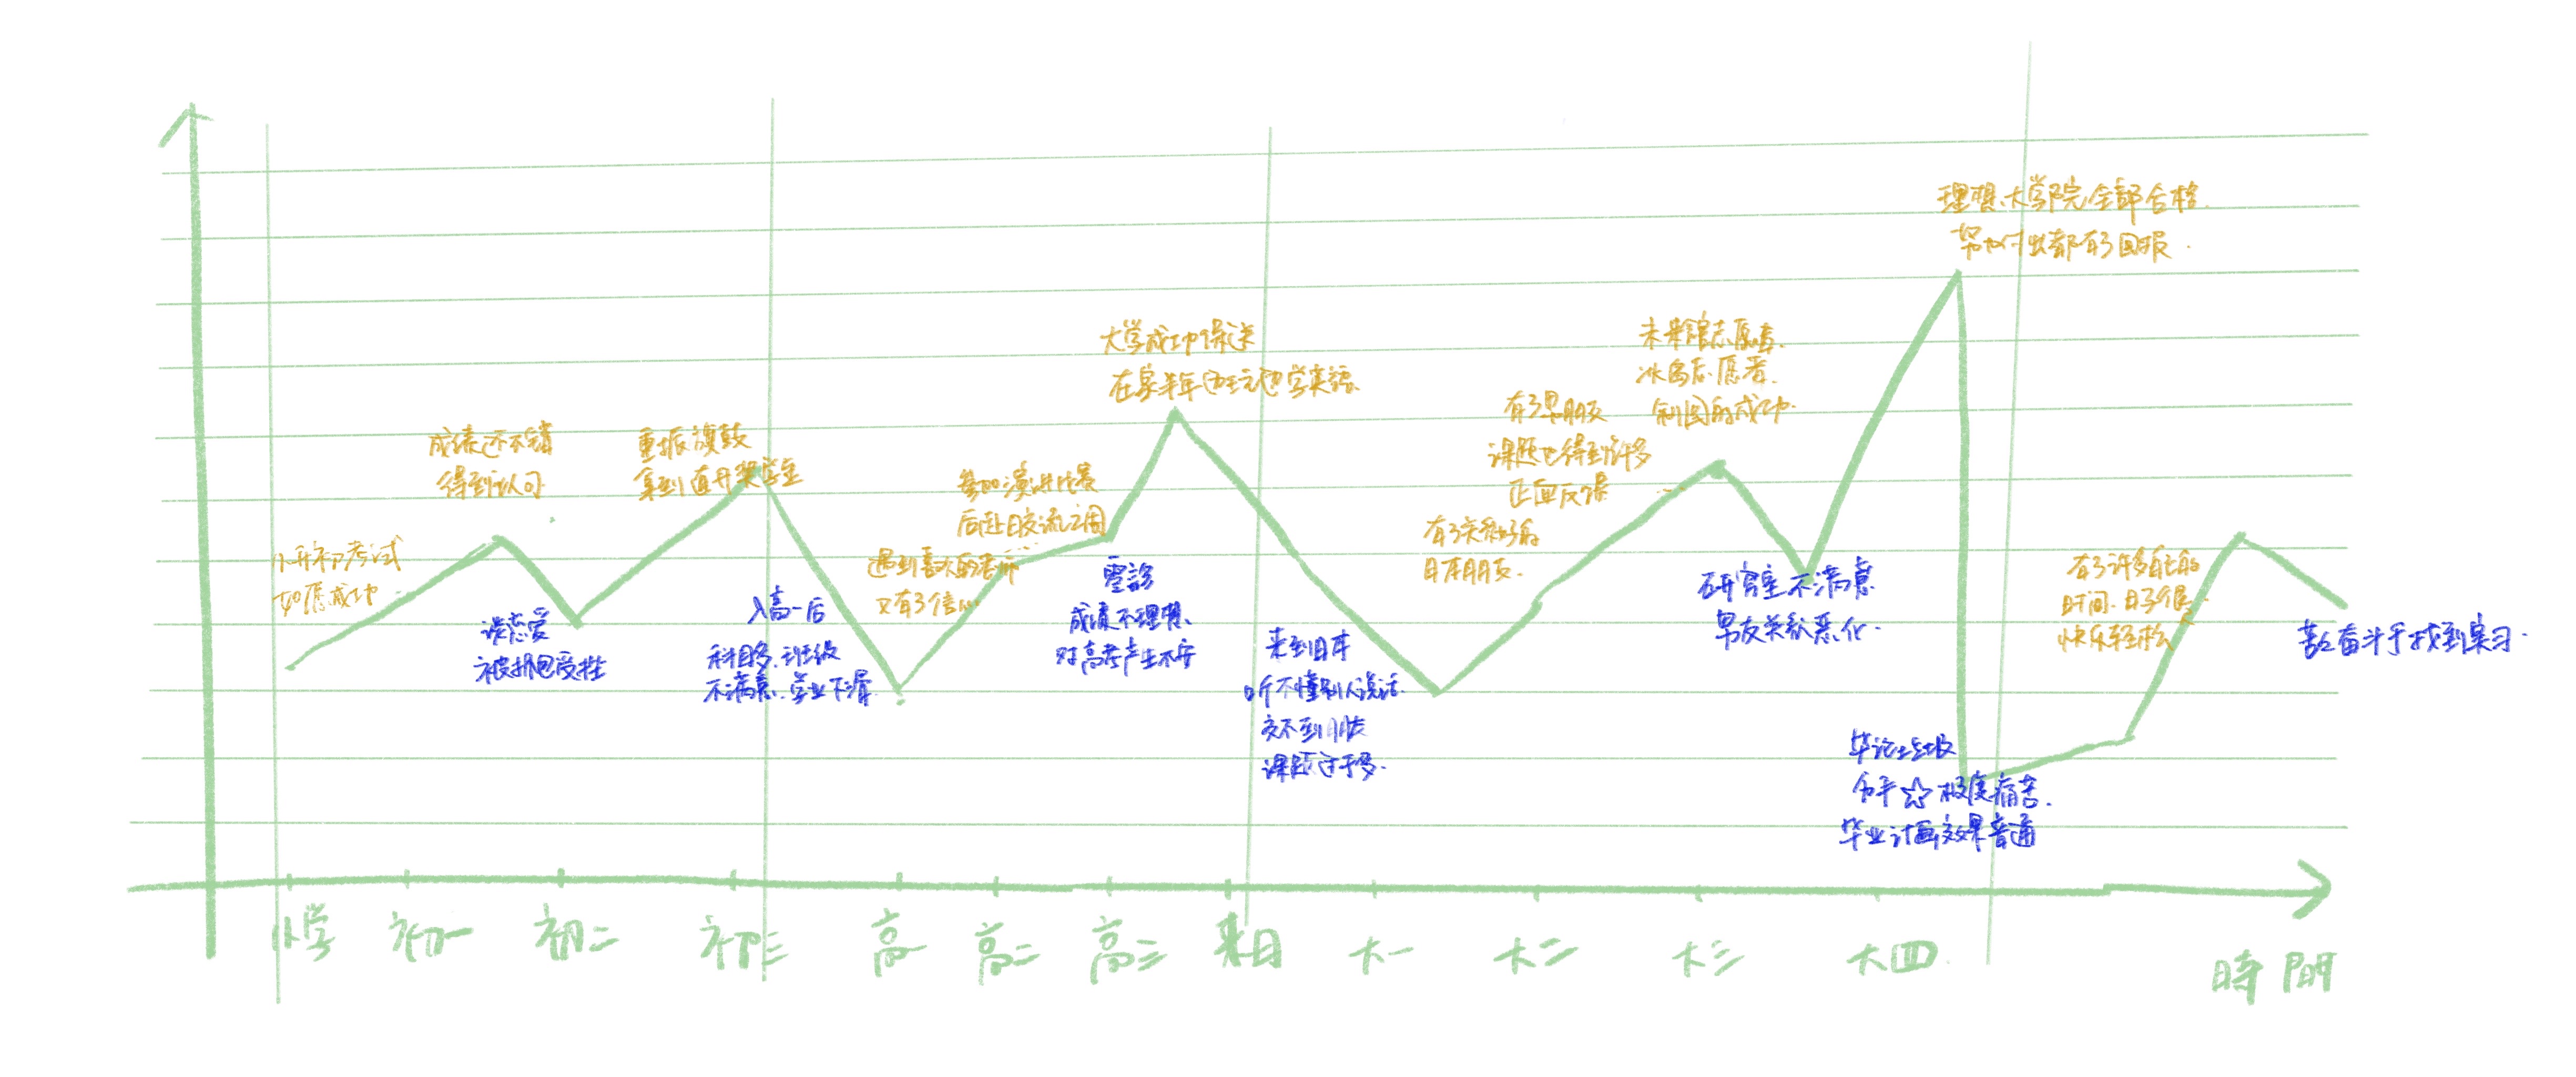 小升初考试
如愿成功
成绩还不错
得到认可
谈恋爱
被抓包受挫
重振旗鼓
拿到直升奖学金
入高一后
科目多、班级
不满意、学业下滑
遇到喜欢的老师
又有了信心
参加演讲比赛
后赴日交流2周
零诊
成绩不理想、
对高考产生不安
大学成功保送
在家半年也玩也学英语
来到日本
听不懂别人说话
交不到朋友
课题过于多.
有了关系好的
日本朋友.
有了男朋友
课题也得到许多
正面反馈
未来馆志愿者.
冰岛志愿者.
制图的成功.
研究室不满意
男友关系恶化.
理想大学院全部合格.
努力付出都有了回报.
毕论垃圾
分手☆极度痛苦.
毕业计画效果普通
有了许多自由的
时间、日子很
快乐轻松
苦苦奋斗于找到实习.
小学
初一
初二
初三
高一
高二
高三
来日
大一
大二
大三
大四
時間